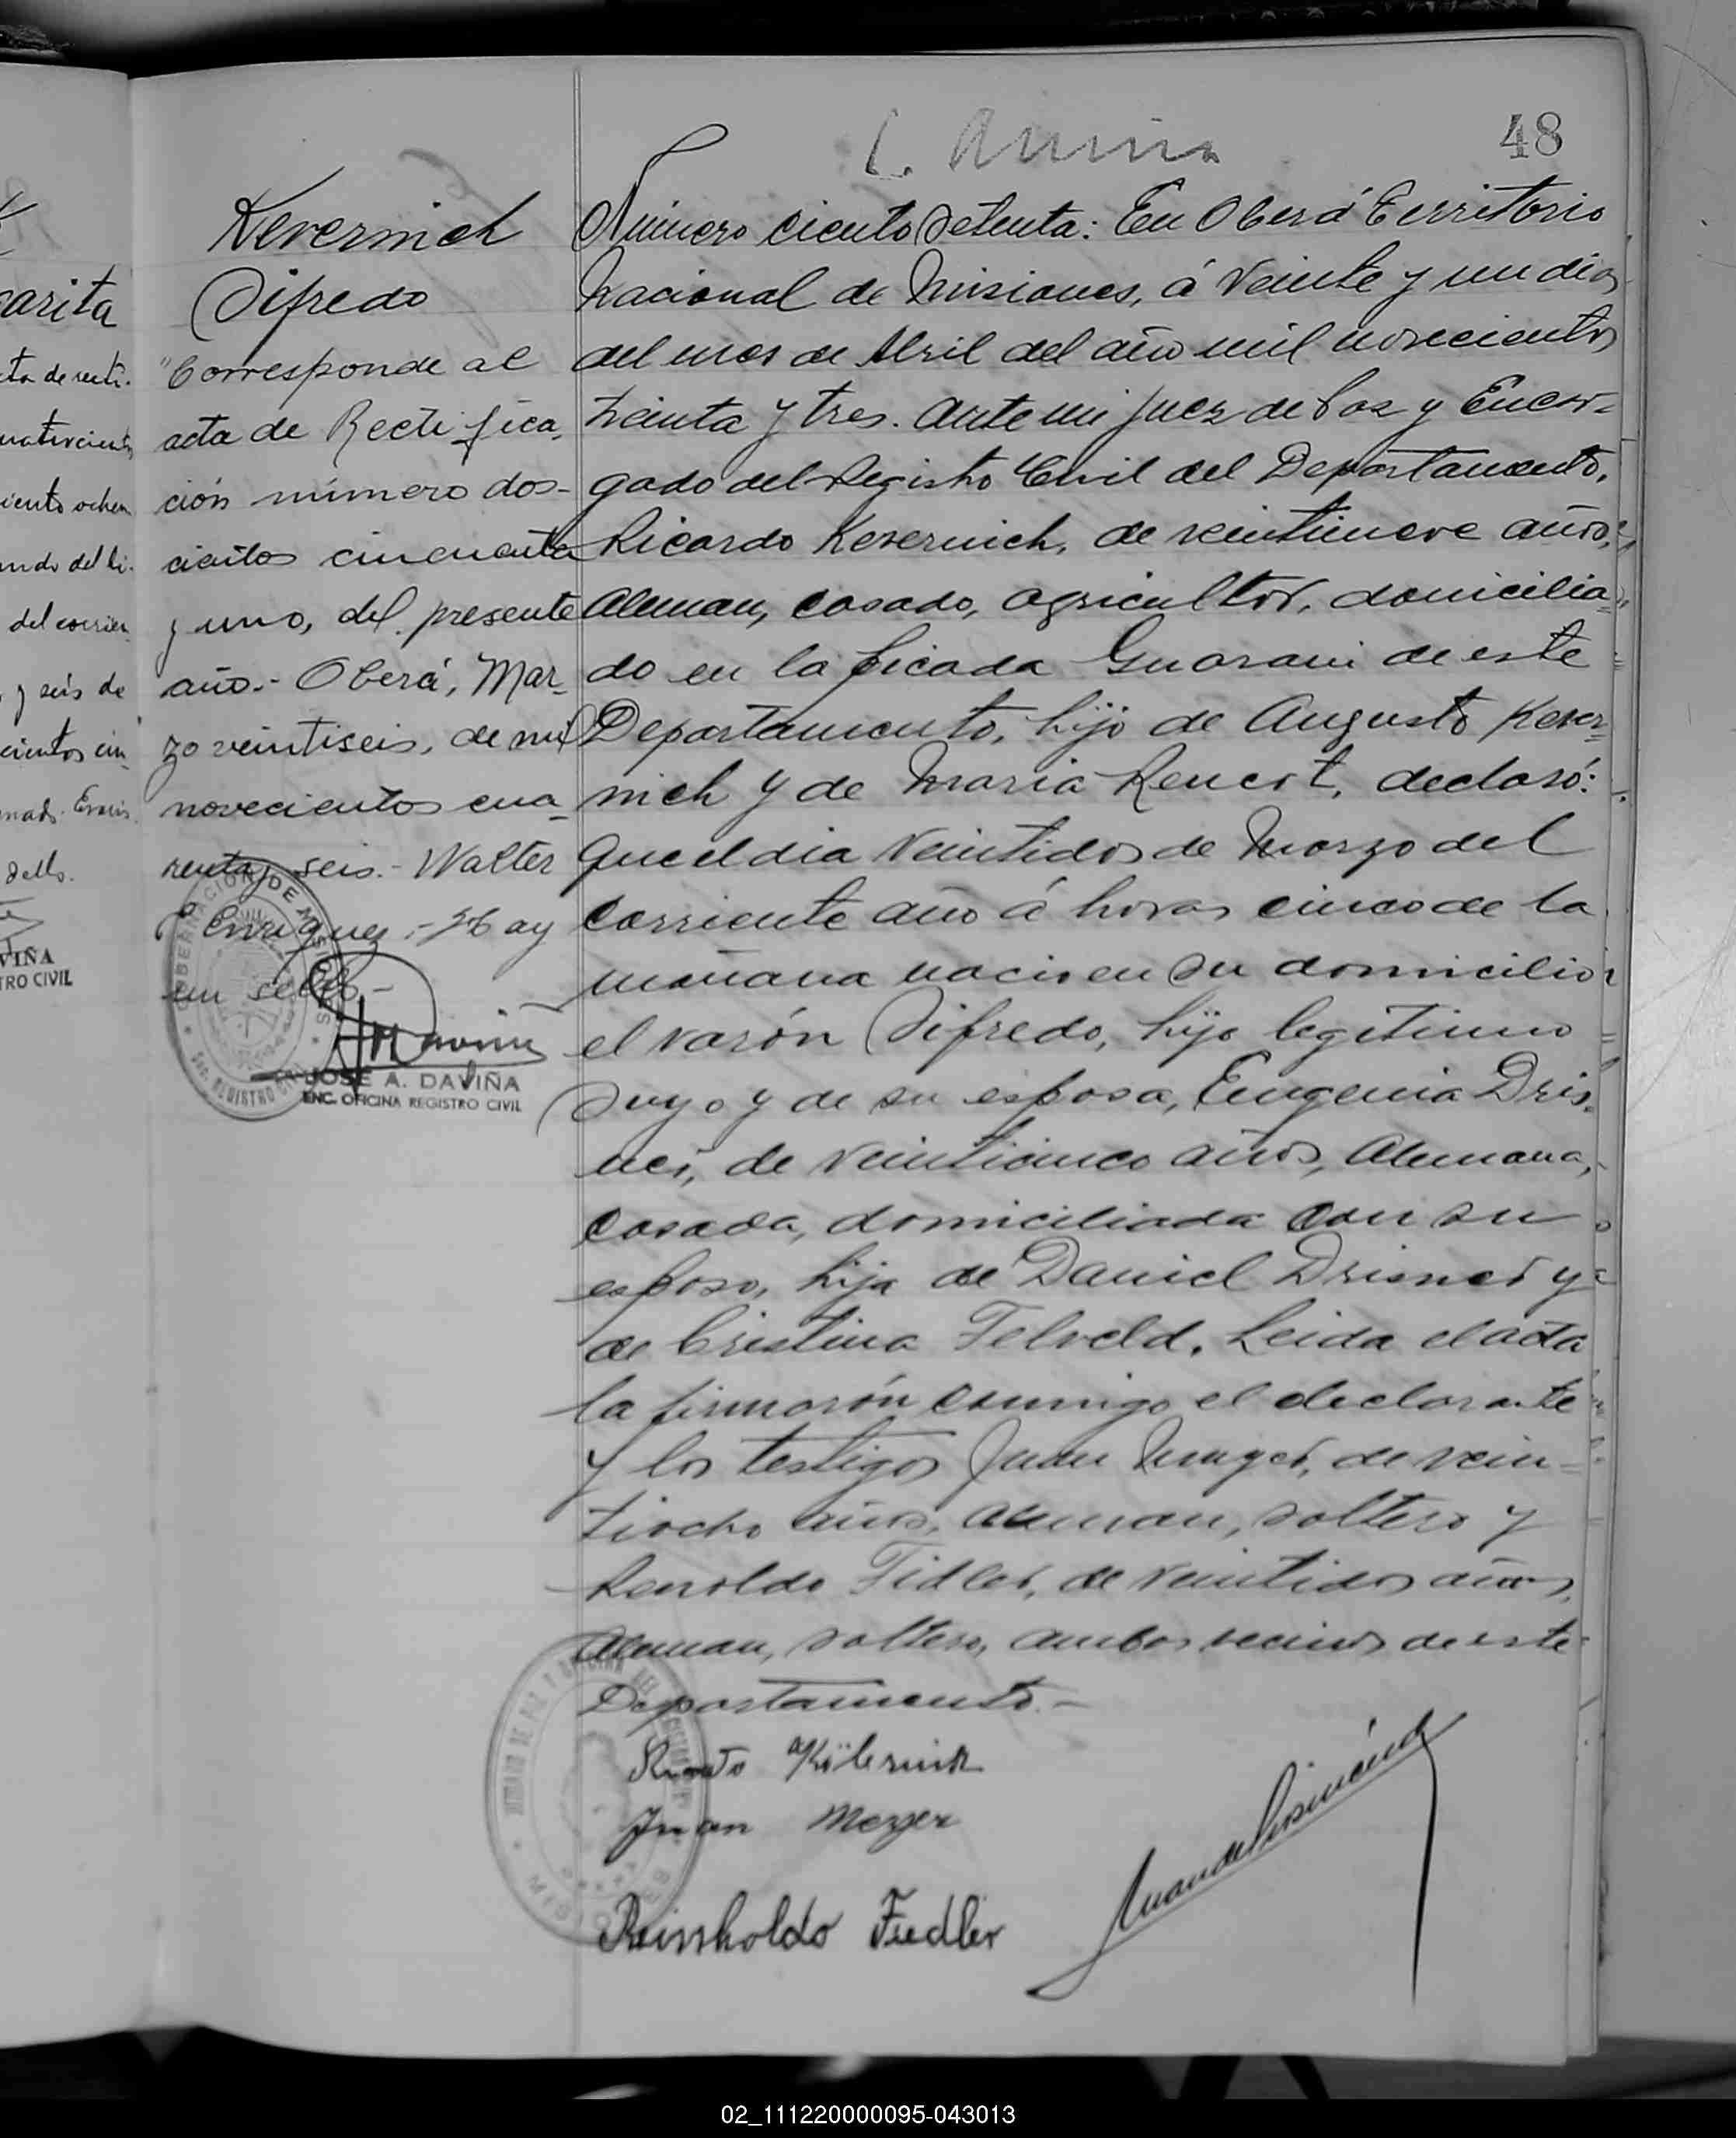 48
Kevernich
Sifredo
"Corresponde al
acta de Rectifica-
ción número dos-
cientos cincuenta
y uno, del presente
año.- Oberá, Mar-
zo veintiseis, de mil
novecientos cua-
renta y seis.- Walter
Enriquez.- Hay
un sello.-
JOSE A. DAVIÑA
ENC. OFICINA REGISTRO CIVIL
Número ciento setenta: En Oberá Territorio
Nacional de Misiones, á veinte y un dias
del mes de Abril del año mil novecientos
treinta y tres. Ante mi Juez de Paz y Encar-
gado del Registro Civil del Departamento,
Ricardo Kevernich, de veintinueve años,
Aleman, casado, agricultor, domicilia-
do en la Picada Guarani de este
Departamento, hijo de Augusto Kever-
nich y de Maria Renert, declaró:
Que el dia veintidos de Marzo del
corriente año á horas cinco de la
mañana nacio en su domicilio
el varón Sifredo, hijo legitimo
suyo y de su esposa, Eugenia Dris-
ner, de veinticinco años, Alemana,
casada, domiciliada con su
esposo, hija de Daniel Drisner y
de Cristina Felveld. Leida el acta
la firmarón conmigo el declarante
y los testigos Juan Menger, de vein-
tiocho años, Aleman, soltero y
Renoldo Fidler, de veintidos años,
Aleman, soltero, ambos vecinos de este
Departamento.-
Juan Mezger
Reinholdo Fiedler
arita
cta de recti-
iento ochen
del corrien
y seis de
cientos cin-
Sello.
VIÑA
TRO CIVIL
02_111220000095-043013